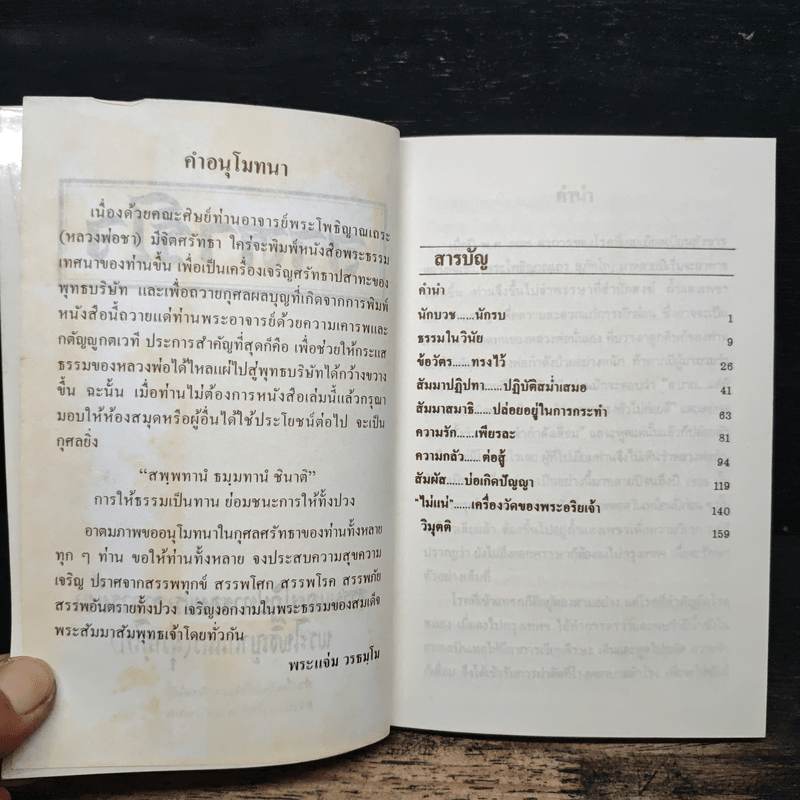 คำอนุโมทนา
เนื่องด้วยคณะศิษย์ท่านอาจารย์พระโพธิญาณเถระ
(หลวงพ่อชา) มีจิตศรัทธา ใคร่จะพิมพ์หนังสือพระธรรม
เทศนาของท่านขึ้น เพื่อเป็นเครื่องเจริญศรัทธาปสาทะของ
พุทธบริษัท และเพื่อถวายกุศลผลบุญที่เกิดจากการพิมพ์
หนังสือนี้ถวายแด่ท่านพระอาจารย์ด้วยความเคารพและ
กตัญญูกตเวที ประการสำคัญที่สุดก็คือ เพื่อช่วยให้กระแส
ธรรมของหลวงพ่อได้ไหลแผ่ไปสู่พุทธบริษัทได้กว้างขวาง
ขึ้น ฉะนั้น เมื่อท่านไม่ต้องการหนังสือเล่มนี้แล้วกรุณา
มอบให้ห้องสมุดหรือผู้อื่นได้ใช้ประโยชน์ต่อไป จะเป็น
กุศลยิ่ง
“สพฺพทานํ ธมฺมทานํ ชินาติ”
การให้ธรรมเป็นทาน ย่อมชนะการให้ทั้งปวง
อาตมภาพขออนุโมทนาในกุศลศรัทธาของท่านทั้งหลาย
ทุก ๆ ท่าน ขอให้ท่านทั้งหลาย จงประสบความสุขความ
เจริญ ปราศจากสรรพทุกข์ สรรพโศก สรรพโรค สรรพภัย
สรรพอันตรายทั้งปวง เจริญงอกงามในพระธรรมของสมเด็จ
พระสัมมาสัมพุทธเจ้าโดยทั่วกัน
พระแจ่ม วรธมฺโม
สารบัญ
คำนำ
นักบวช......นักรบ 1
ธรรมในวินัย 9
ข้อวัตร......ทรงไว้ 26
สัมมาปฏิปทา......ปฏิบัติสม่ำเสมอ 41
สัมมาสมาธิ......ปล่อยอยู่ในการกระทำ 63
ความรัก......เพียรละ 81
ความกลัว......ต่อสู้ 94
สัมผัส......บ่อเกิดปัญญา 119
"ไม่แน่"......เครื่องวัดของพระอริยเจ้า 140
วิมุตติ 159